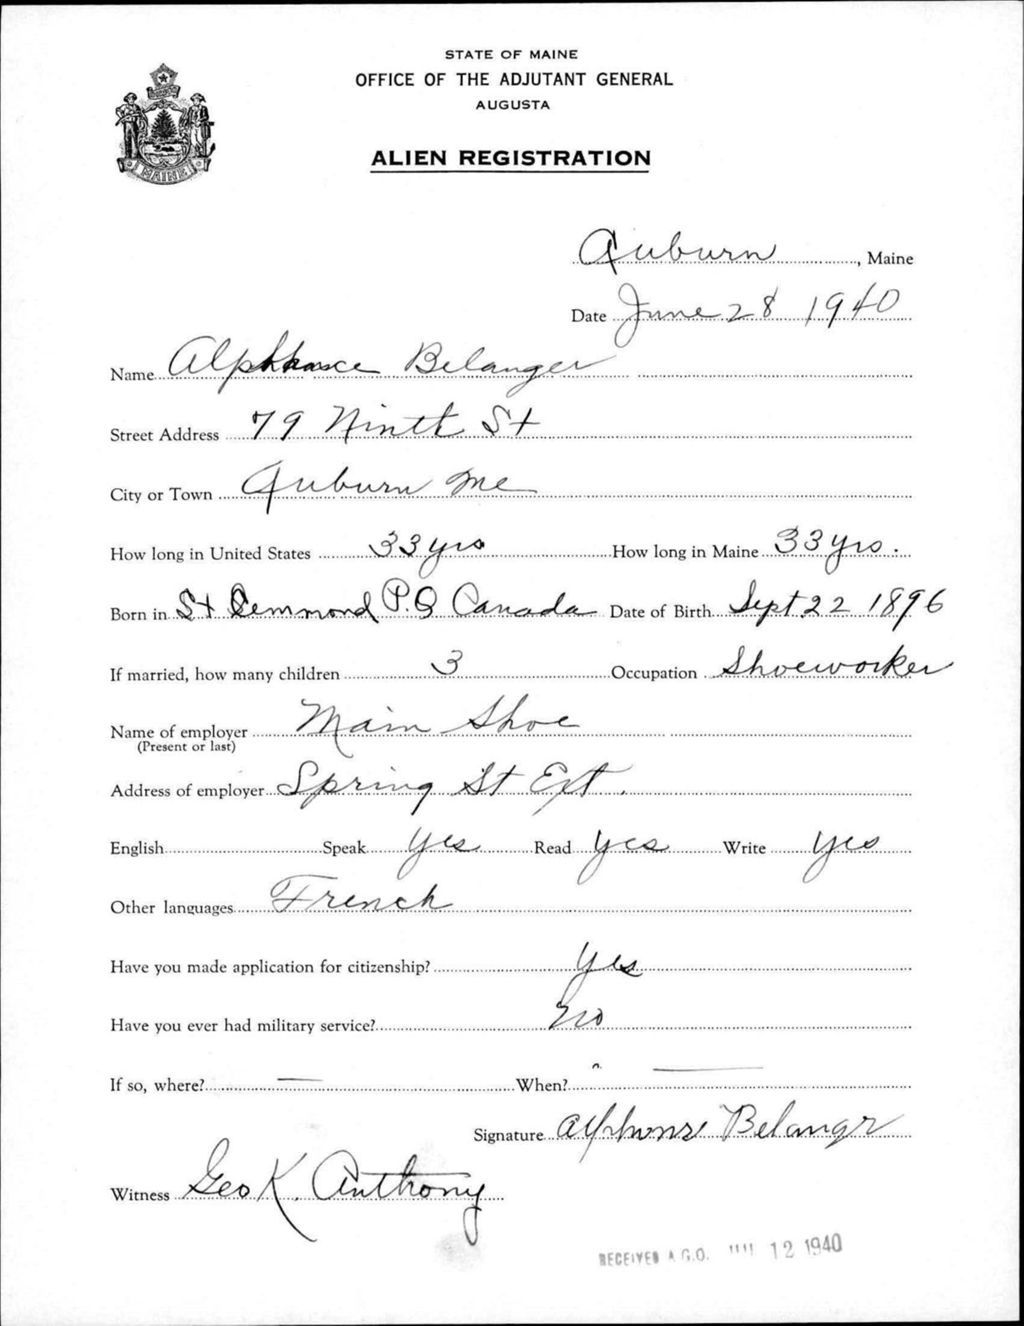 STATE OF MAINE
OFFICE OF THE ADJUTANT GENERAL
AUGUSTA
ALIEN REGISTRATION
MAINE
Auburn, Maine
Date June 28 1940
Name Belanger
Street Address 79 Ninth St
City or Town Auburn Me
How long in United States 33 yrs How long in Maine 33 yrs.
Born in St P.Q Canada Date of Birth Sept 22 1896
If married, how many children 3 Occupation Shoeworker
Name of employer Main Shoe
(Present or last)
Address of employer Spring St Ext.
English Speak yes Read yes Write yes
Other languages French
Have you made application for citizenship? yes
Have you ever had military service? no
If so, where? — When? —
Signature Alphonse Belangr
Witness Geo K. Anthony
RECEIVED A.G.O. 12 1940